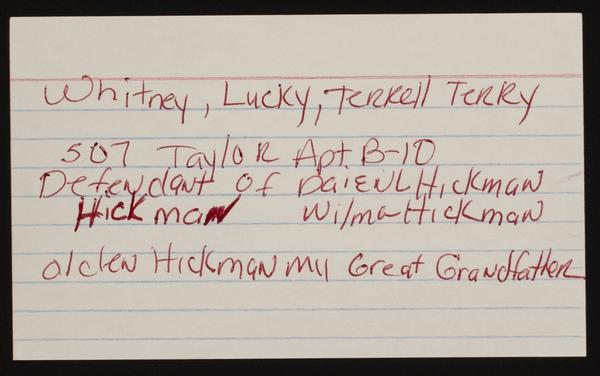 Whitney, Lucky, Terrell Terry
507 Taylor Apt. B-10
Defendant of Daienl Hickman
Hickman Wilma-Hickman
Olden Hickman my Great Grandfather